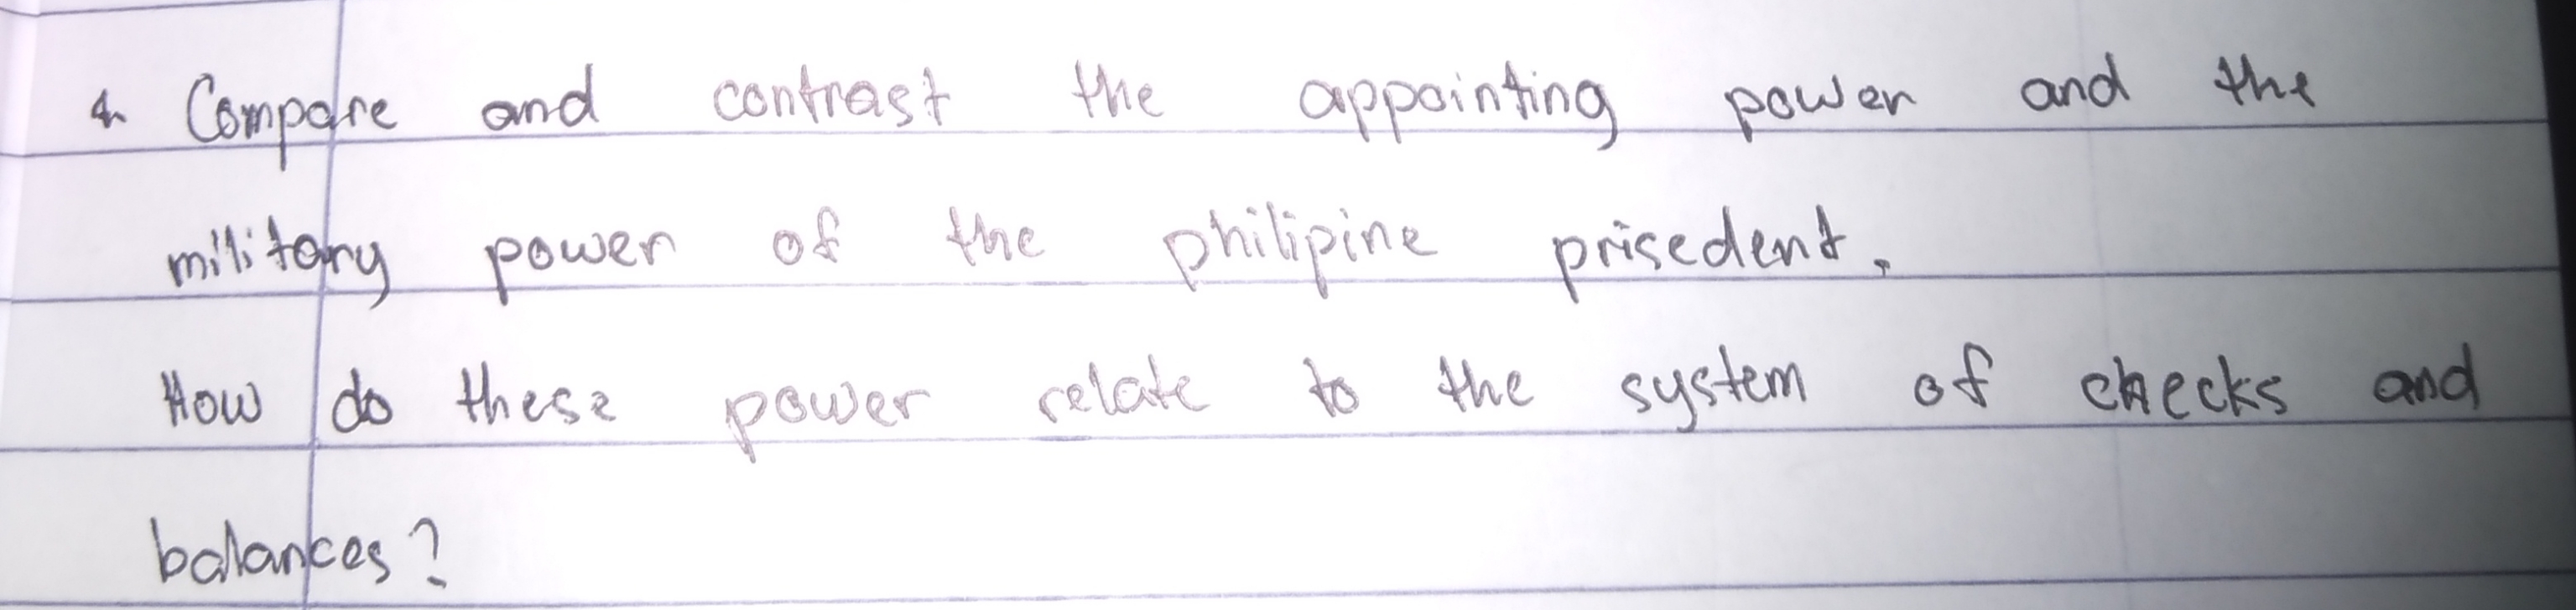 4. Compare and contrast the appointing power and the
military power of the philipine prisedent.
How do these power relate to the system of checks and
balances?